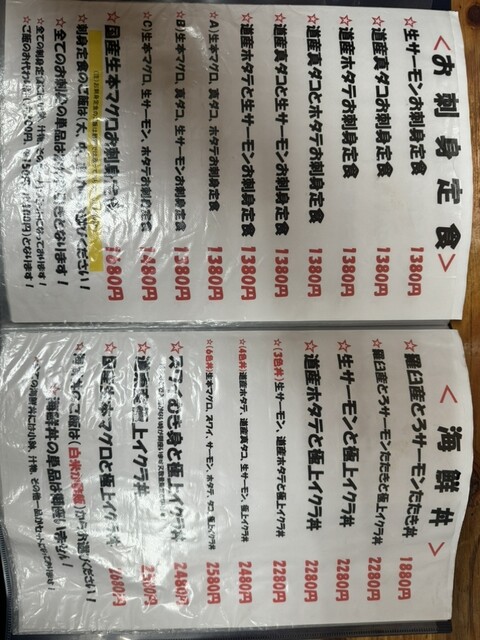 <お刺身定食>
☆生サーモンお刺身定食 1380円
☆道産真ダコお刺身定食 1380円
☆道産ホタテお刺身定食 1380円
☆道産真ダコとホタテお刺身定食 1380円
☆道産真ダコと生サーモンお刺身定食 1380円
☆道産ホタテと生サーモンお刺身定食 1380円
☆A)生本マグロ、真ダコ、ホタテお刺身定食 1380円
☆B)生本マグロ、真ダコ、生サーモンお刺身定食 1380円
☆C)生本マグロ、生サーモン、ホタテお刺身定食 1480円
☆国産生本マグロお刺身定食 1680円
☆刺身定食のご飯は
ください!
☆全てのお刺身の単品は
きとなります!
<海鮮丼>
☆羅臼産とろサーモンたたき丼 1880円
☆羅臼産とろサーモンたたきと極上イクラ丼 2280円
☆生サーモンと極上イクラ丼 2280円
☆道産ホタテと極上イクラ丼 2280円
☆(3色丼)生サーモン、道産ホタテと極上イクラ丼 2280円
☆(4色丼)道産ホタテ、道産真タコ、生サーモン、極上イクラ丼 2480円
☆(6色丼)生本マグロ、ズワイ、サーモン、ホタテ、タコ、極上イクラ丼 2580円
むき身と極上イクラ丼 2480円
極上イクラ丼
本マグロと極上イクラ丼 2680円
ご飯は(白米か酢飯)
ください!
海鮮丼の単品は